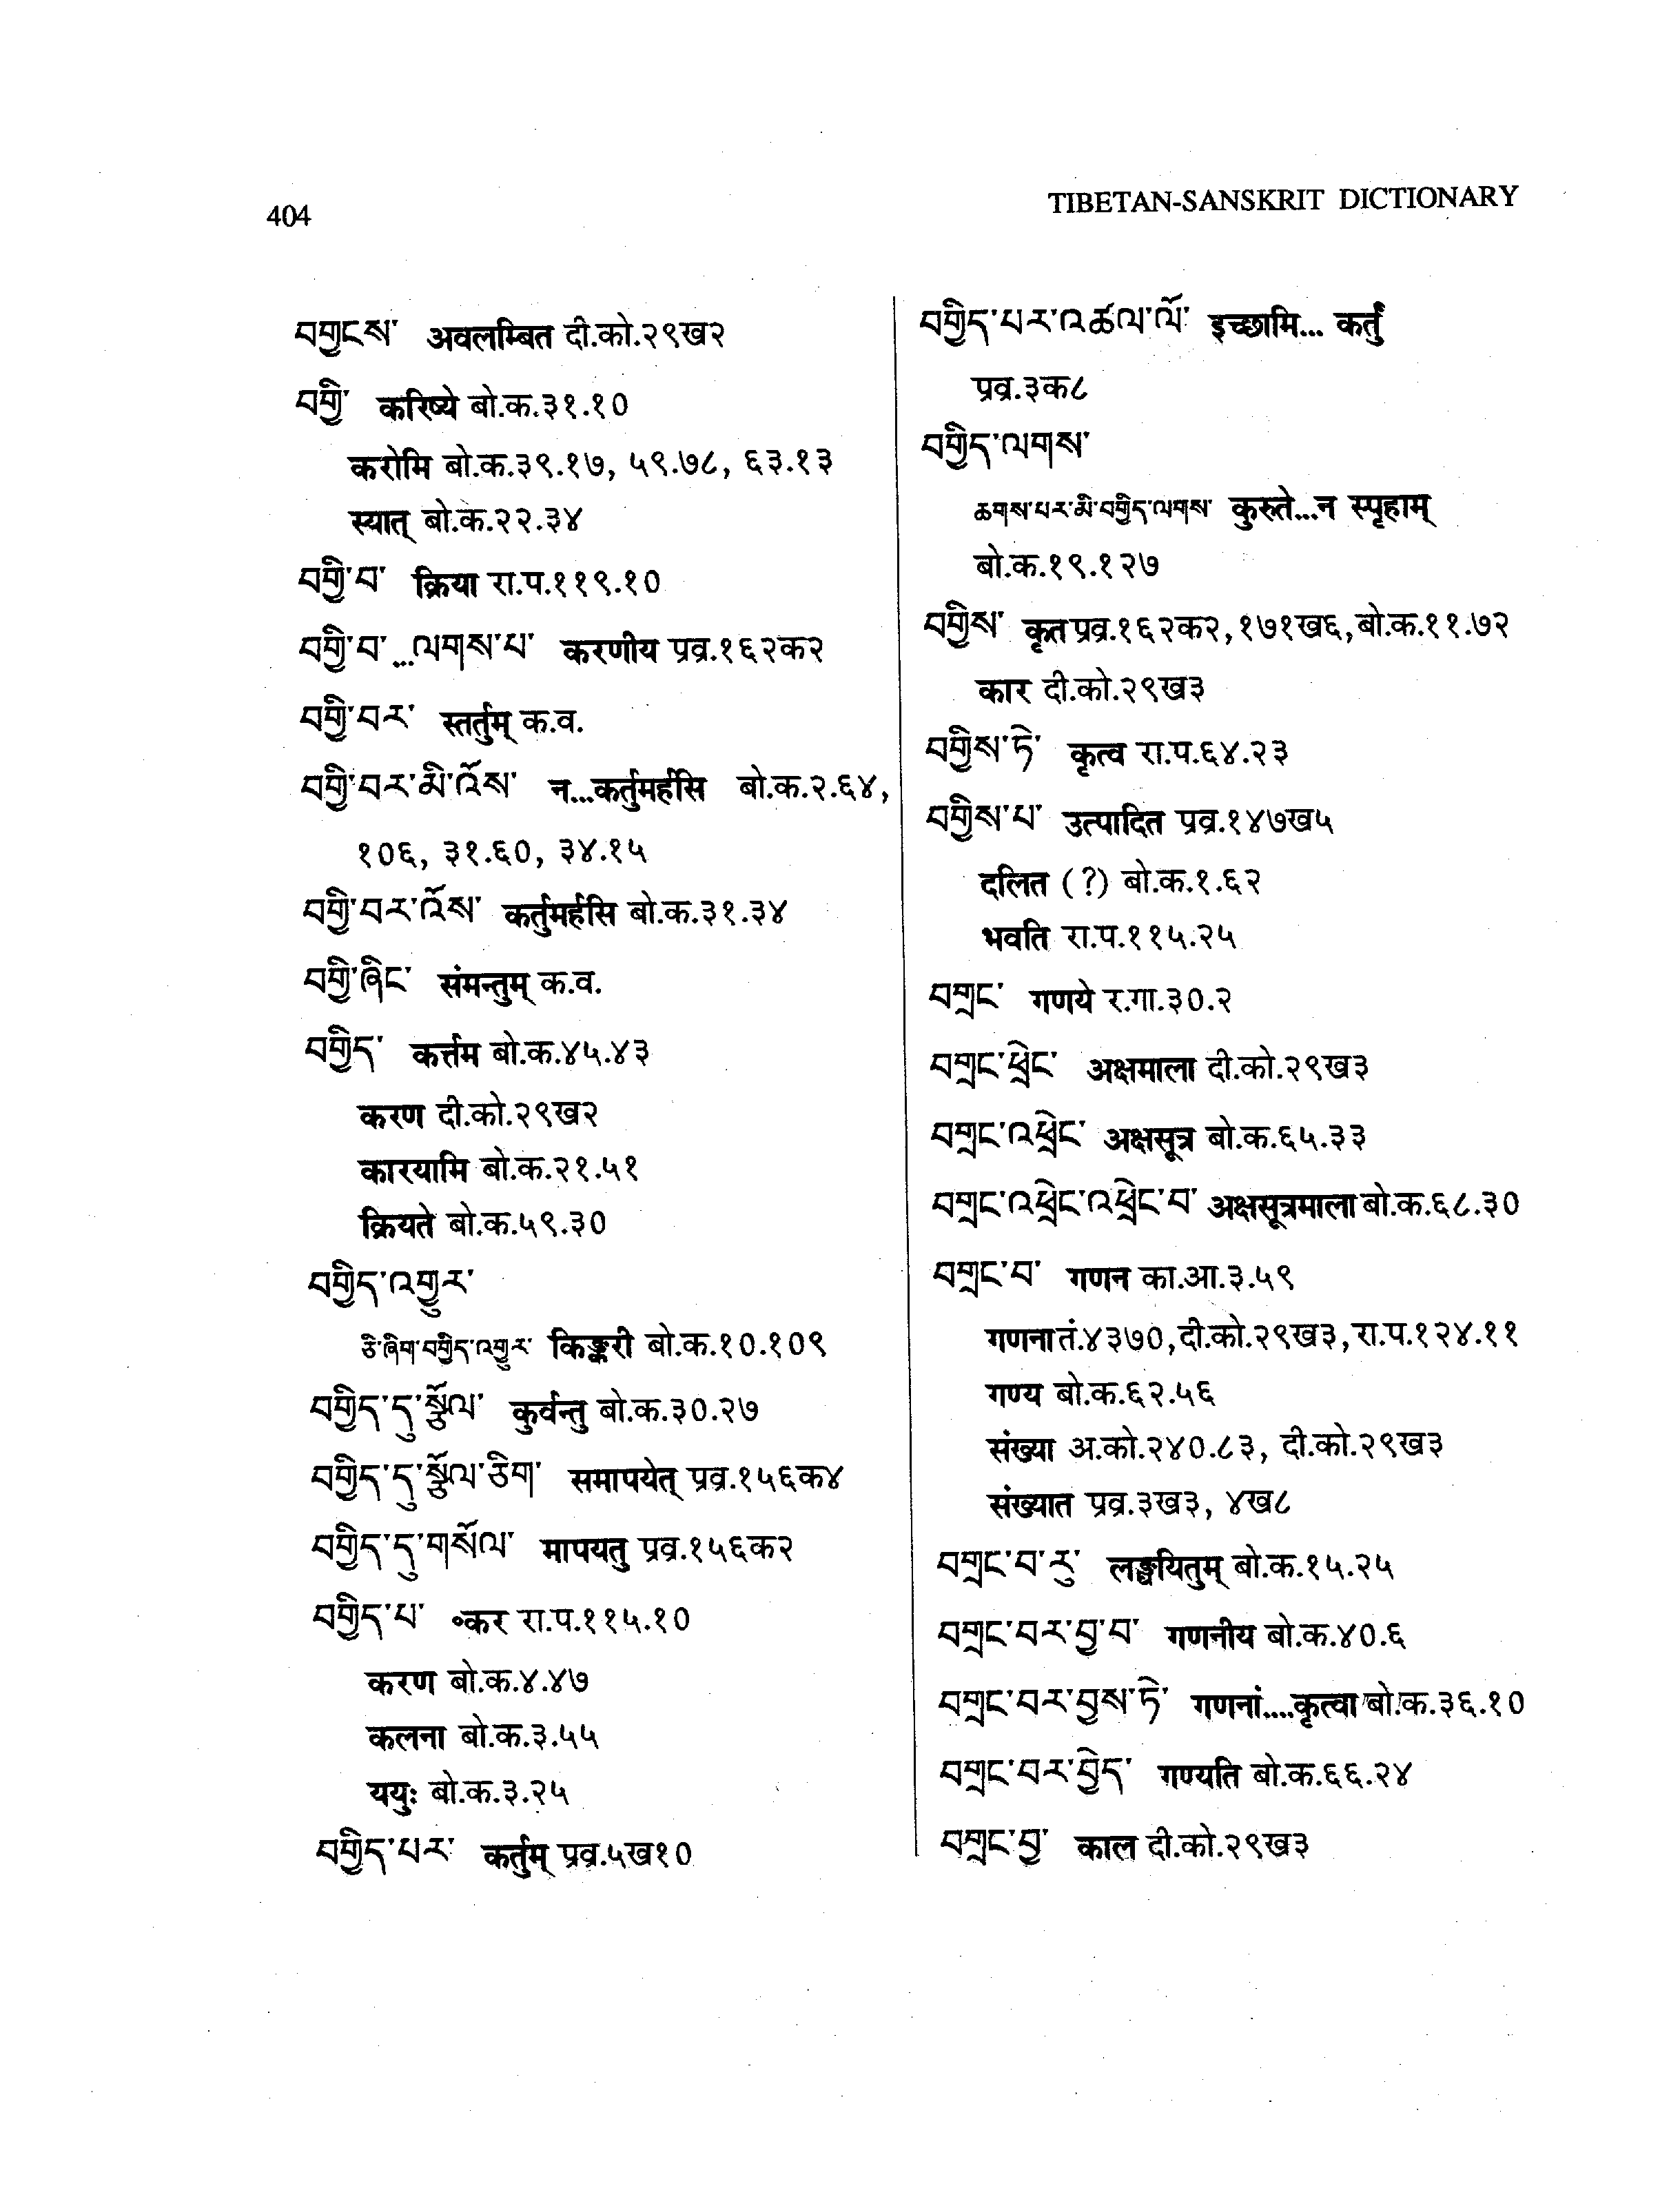 404
TIBETAN-SANSKRIT DICTIONARY
བགྱངས་ अवलम्बित दी.को.२९ख२
བགྱི་ करिष्ये बो.क.३१.१०
करोमि बो.क.३९.१७, ५९.७८, ६३.१३
स्यात् बो.क.२२.३४
བགྱི་བ་ क्रिया रा.प.११९.१०
བགྱི་བ་...ལགས་པ་ करणीय प्रव्र.१६२क२
བགྱི་བར་ स्तर्तुम् क.व.
བགྱི་བར་མི་འོས་ न...कर्तुमर्हसि बो.क.२.६४,
१०६, ३१.६०, ३४.१५
བགྱི་བར་འོས་ कर्तुमर्हसि बो.क.३१.३४
བགྱི་ཞིང་ संमन्तुम् क.व.
བགྱིད་ कर्त्तम बो.क.४५.४३
करण दी.को.२९ख२
कारयामि बो.क.२१.५१
क्रियते बो.क.५९.३०
བགྱིད་འགྱུར་
ཅི་ཞིག་བགྱིད་འགྱུར་ किङ्करी बो.क.१०.१०९
བགྱིད་དུ་སྩོལ་ कुर्वन्तु बो.क.३०.२७
བགྱིད་དུ་སྩོལ་ཅིག་ समापयेत् प्रव्र.१५६क४
བགྱིད་དུ་གསོལ་ मापयतु प्रव्र.१५६क२
བགྱིད་པ་ ॰कर रा.प.११५.१०
करण बो.क.४.४७
कलना बो.क.३.५५
ययुः बो.क.३.२५
བགྱིད་པར་ कर्तुम् प्रव्र.५ख१०
བགྱིད་པར་འཚལ་ལོ་ इच्छामि... कर्तुं
प्रव्र.३क८
བགྱིད་ལགས་
ཆགས་པར་མི་བགྱིད་ལགས་ कुरुते...न स्पृहाम्
बो.क.१९.१२७
བགྱིས་ कृत प्रव्र.१६२क२,१७१ख६,बो.क.११.७२
कार दी.को.२९ख३
བགྱིས་ཏེ་ कृत्व रा.प.६४.२३
བགྱིས་པ་ उत्पादित प्रव्र.१४७ख५
दलित (?) बो.क.१.६२
भवति रा.प.११५.२५
བགྲང་ गणये र.गा.३०.२
བགྲང་ཕྲེང་ अक्षमाला दी.को.२९ख३
བགྲང་འཕྲེང་ अक्षसूत्र बो.क.६५.३३
བགྲང་འཕྲེང་འཕྲེང་བ་ अक्षसूत्रमाला बो.क.६८.३०
བགྲང་བ་ गणन का.आ.३.५९
गणना तं.४३७०,दी.को.२९ख३,रा.प.१२४.११
गण्य बो.क.६२.५६
संख्या अ.को.२४०.८३, दी.को.२९ख३
संख्यात प्रव्र.३ख३, ४ख८
བགྲང་བ་རུ་ लङ्घयितुम् बो.क.१५.२५
བགྲང་བར་བྱ་བ་ गणनीय बो.क.४०.६
བགྲང་བར་བྱས་ཏེ་ गणनां....कृत्वा बो.क.३६.१०
བགྲང་བར་བྱེད་ गण्यति बो.क.६६.२४
བགྲང་བྱ་ काल दी.को.२९ख३